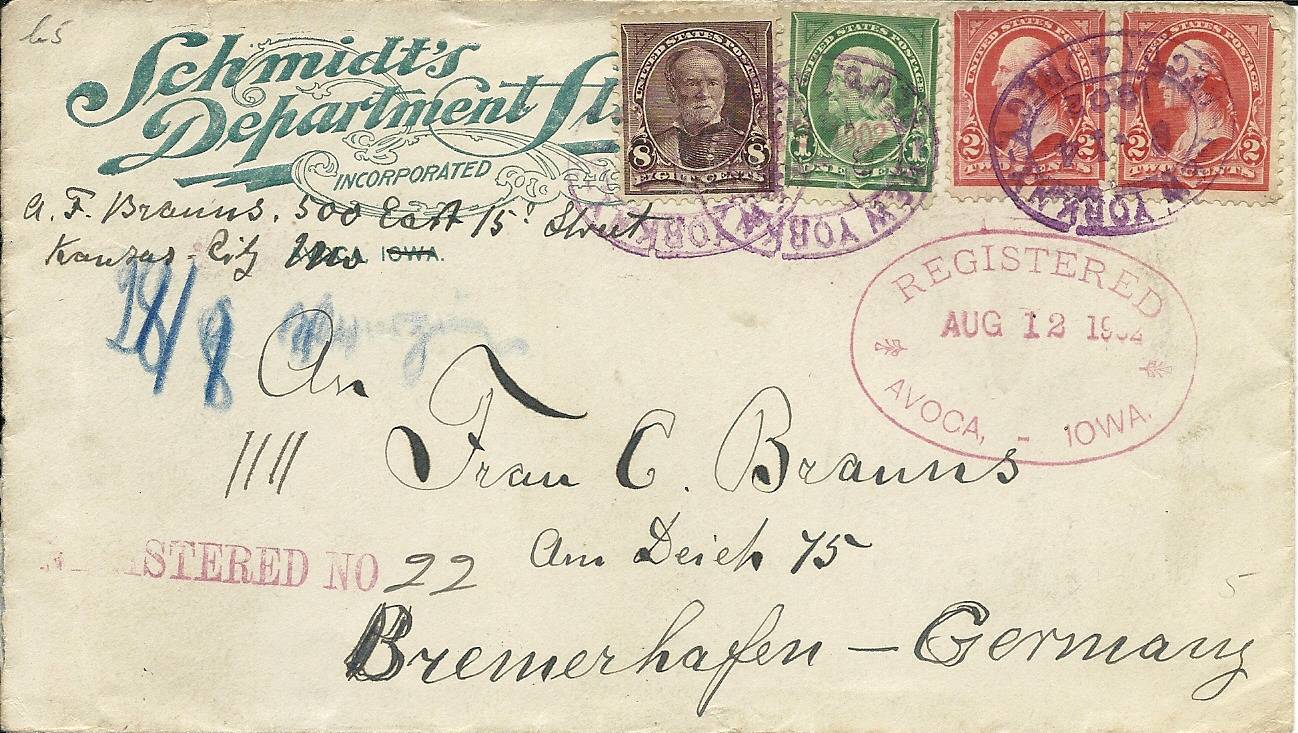 Schmidt's
Department St
INCORPORATED
A. F. Brauns. 500 East 15' Street
Kansas-City Mo
IOWA.
UNITED STATES POSTAGE
8 8
EIGHT CENTS
UNITED STATES POSTAGE
1 1
ONE CENT
UNITED STATES POSTAGE
2 2
TWO CENTS
UNITED STATES POSTAGE
2 2
TWO CENTS
NEW YORK
NEW YORK
NEW YORK
REGISTERED
AUG 12 1902
AVOCA, - IOWA.
18/8
An
Frau C. Brauns
Am Deich 75
REGISTERED NO 22
Bremerhafen - Germany
5